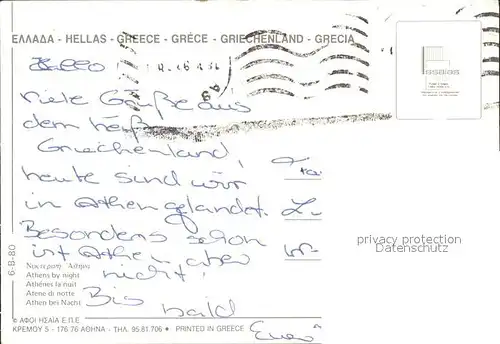 ΕΛΛΑΔΑ - HELLAS - GREECE - GRÈCE - GRIECHENLAND - GRECIA
Hallo
viele Grüße aus
dem heißen
Griechenland!
heute sind wir
in Athen gelandet.
Besonders schön
ist Athen aber
nicht!
Bis
bald
Euer
6-B-80
Νυκτερινή Ἀθήνα
Athens by night
Athènes la nuit
Atene di notte
Athen bei Nacht
© ΑΦΟΙ ΗΣΑΪΑ Ε.Π.Ε
ΚΡΕΜΟΥ 5 - 176 76 ΑΘΗΝΑ - ΤΗΛ. 95.81.706 ● PRINTED IN GREECE
privacy protection
Datenschutz